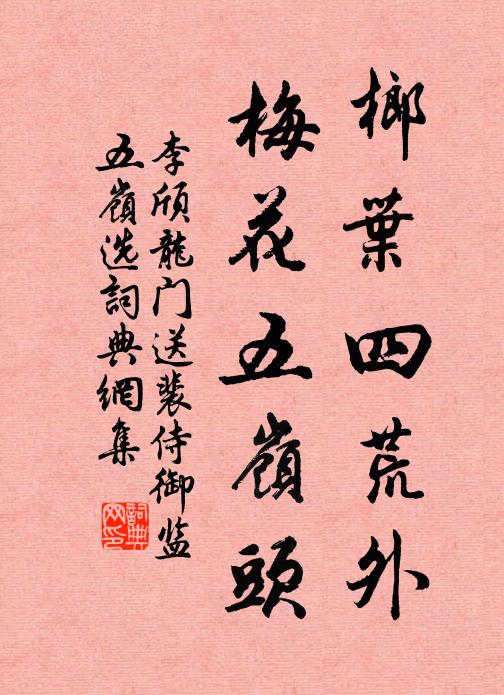 榔葉四荒外
梅花五嶺頭
李颀龍门送裴侍御监
五嶺选詞典網集
詞典网印